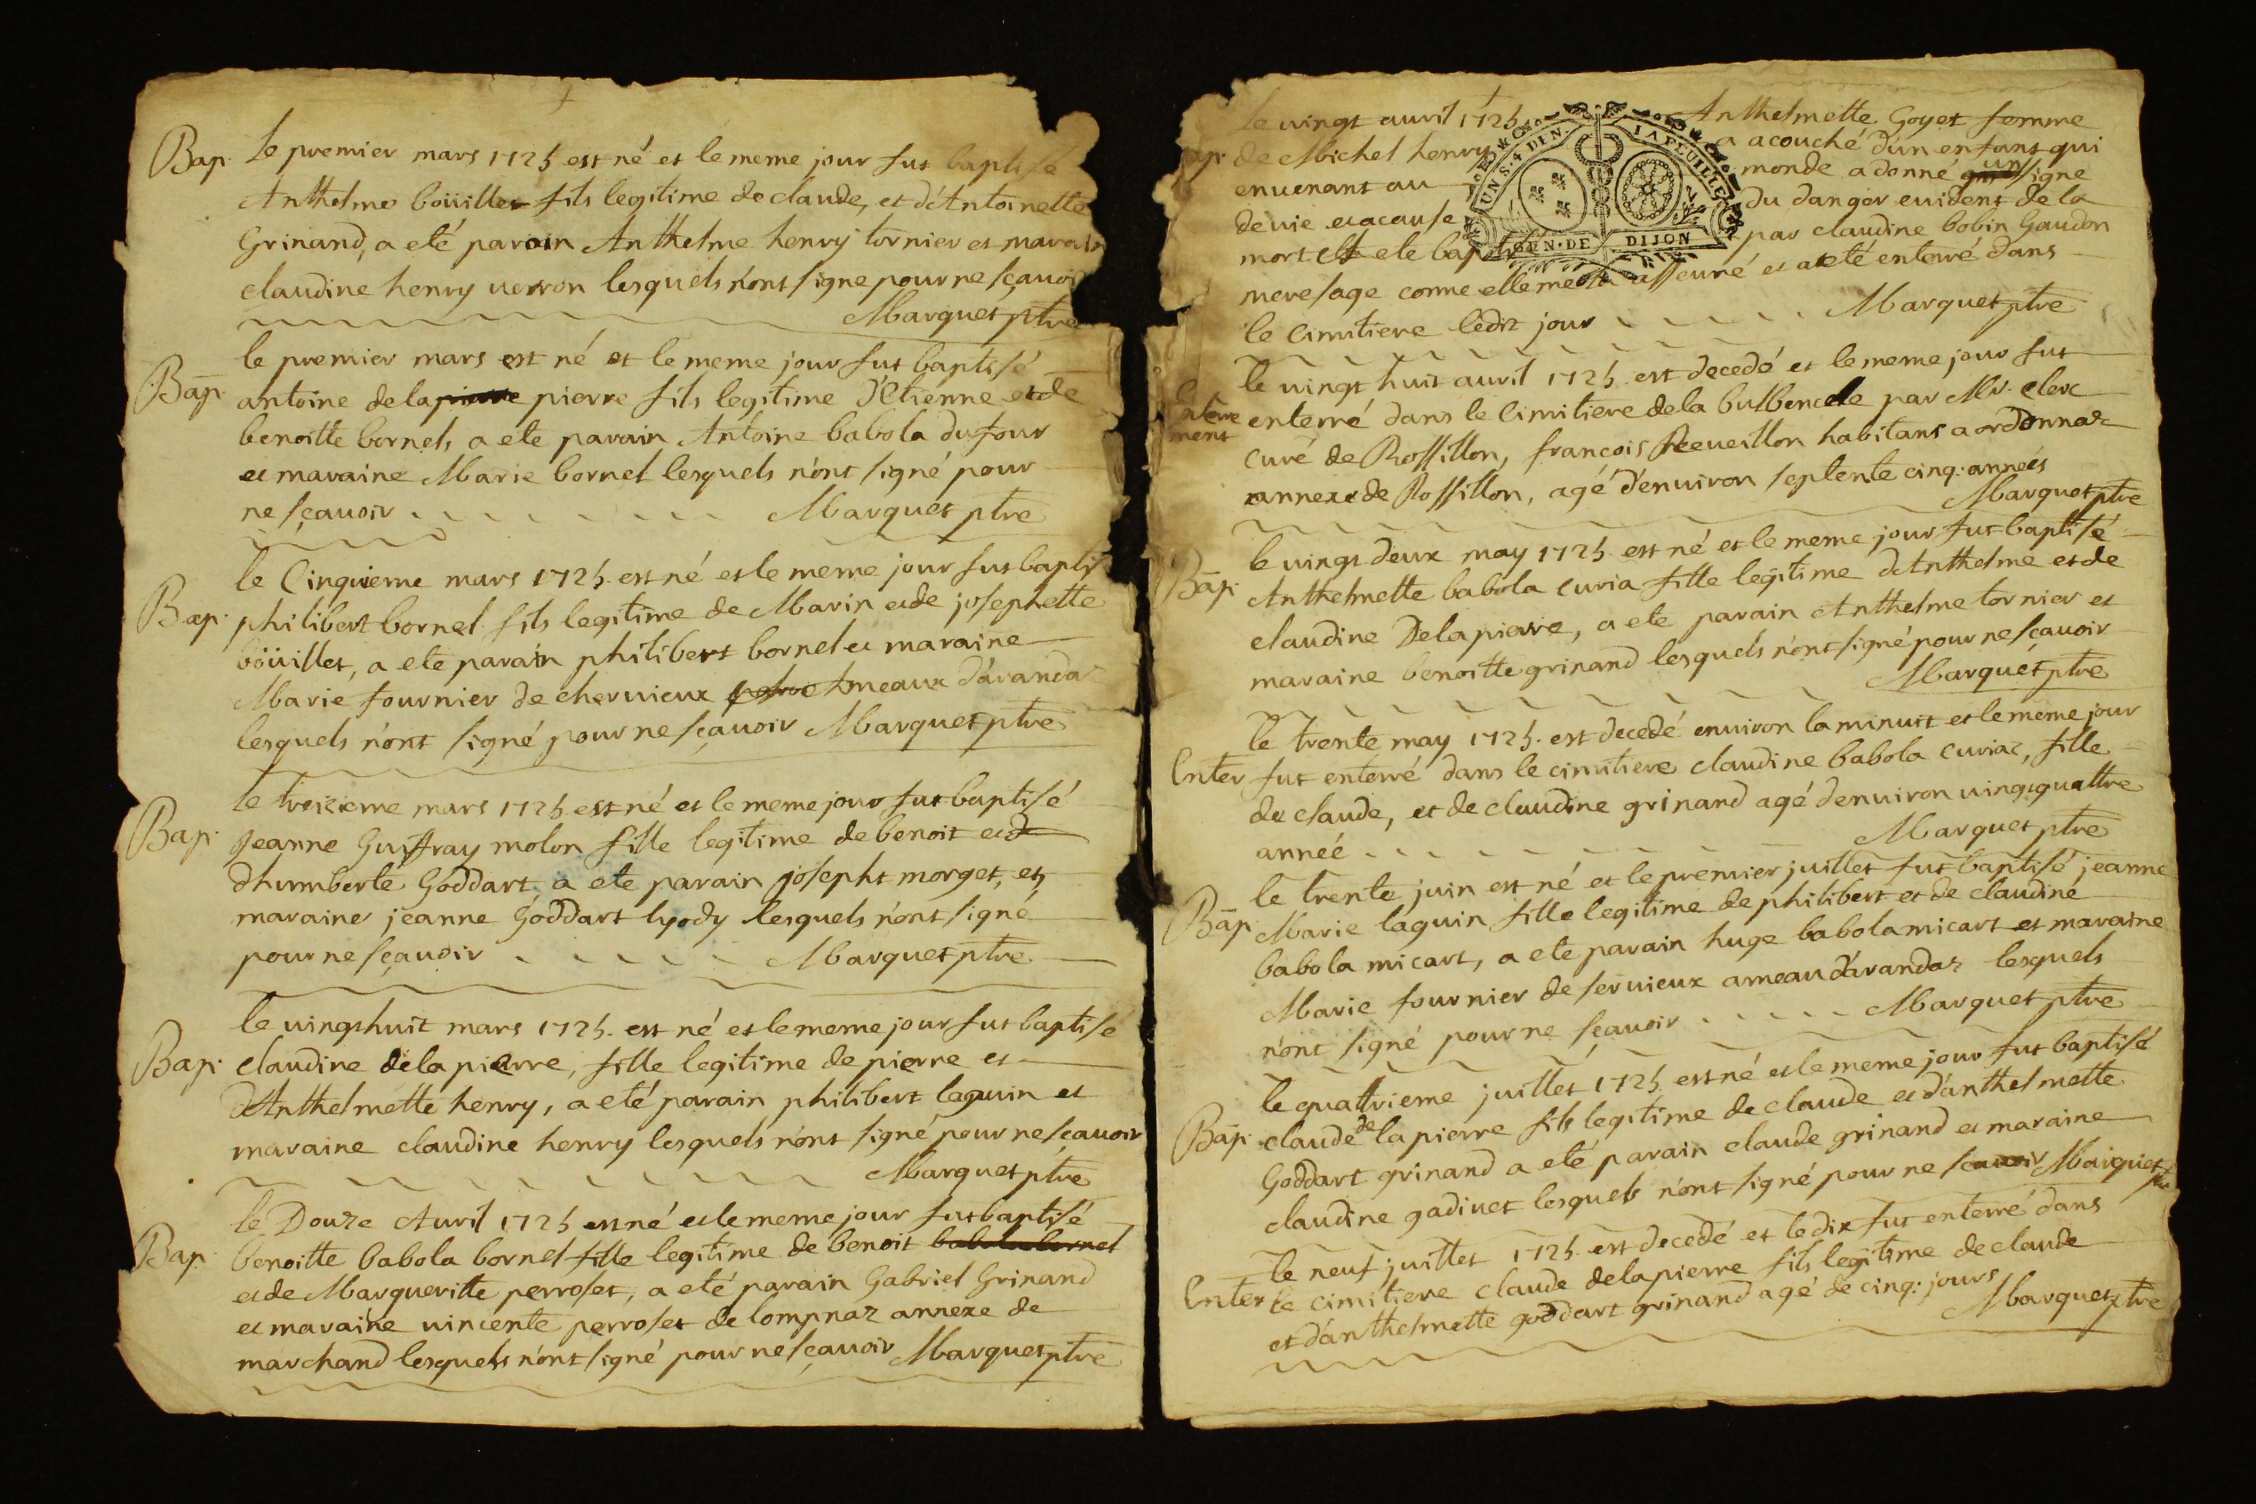 Bap. le premier mars 1725 est né et le meme jour fut baptisé
Anthelme boüillet fils legitime de claude, et d'Antoinette
Grinand, a eté parain Anthelme henry tornier et marain
claudine henry verron lesquels n'ont signe pour ne sçauoir
Marquet ptre
le premier mars est né et le meme jour fut baptisé
Bap. antoine delapierre pierre fils legitime d'Etienne et de
benoitte bornel, a ete parain Antoine babola dufour
et maraine Marie bornel lesquels n'ont signé pour
ne sçauoir Marquet ptre
le Cinquieme mars 1725 est né et le meme jour fut baptis
Bap. philibert bornel fils legitime de Marin et de josephette
boüillet, a ete parain philibert bornel et maraine
Marie fournier de cheruieux hmeaux d'arandaz
lesquels n'ont signé pour ne sçauoir Marquet ptre
le treizieme mars 1725 est né et le meme jour fut baptisé
Bap. jeanne Guiffray molon fille legitime de benoit et de
dhumberte Goddart, a ete parain josepht morget, et
maraine jeanne Goddart lyody lesquels n'ont signé
pour ne sçauoir Marquet ptre
le uingt huit mars 1725. est né et le meme jour fut baptisé
Bap. claudine delapierre, fille legitime de pierre et
d'Anthelmette henry, a eté parain philibert laguin et
maraine claudine henry lesquels n'ont signé pour ne sçauoir
Marquet ptre
le Douze Auril 1725 est né et le meme jour fut baptisé
Bap. benoitte babola bornel fille legitime de benoit babola bornel
et de Margueritte perroset, a eté parain Gabriel Grinand
et maraine uincente perroset de lompnaz annexe de
marchand lesquels n'ont signé pour ne sçauoir Marquet ptre
le uingt auril 1725 Anthelmette Goyet femme
Bap. de Michel henry a acouché d'un enfant qui
enuenant au monde a donné un signe
de uie et a cause du danger euident de la
mort et ete baptisé par claudine bobin Gaudon
UN S. 4 DEN. LA FEUILLE
GEN. DE DIJON
mere sage comme elle me l'a asseuré et a eté enterré dans
le cimitiere ledit jour Marquet ptre
le uingt huit auril 1725. est decedé et le meme jour fut
Enterrement enterré dans le Cimitiere de la bulbencele par Mr. Clerc
curé de Rossillon, francois Reeueillon habitans a ordonnaz
annexe de Rossillon, agé d'enuiron septente cinq. années
Marquet ptre
le uingt deux may 1725. est né et le meme jour fut baptisé
Bap. Anthelmette babola curia fille legitime d'Anthelme et de
claudine Delapierre, a ete parain Anthelme tornier et
maraine benoitte grinand lesquels n'ont signé pour ne sçauoir
Marquet ptre
le trente may 1725. est decedé enuiron la minuit et le meme jour
Enter fut enterré dans le cimitiere claudine babola curiaz, fille
de claude, et de claudine grinand agé denuiron uingt quattre
anneé Marquet ptre
le trente juin est né et le premier juillet fut baptisé jeanne
Bap. Marie laguin fille legitime de philibert et de claudine
babola micart, a ete parain huge babola micart et maraine
Marie fournier de seruieux ameau d'arandaz lesquels
n'ont signé pour ne sçauoir Marquet ptre
le quattrieme juillet 1725. est né et le meme jour fut baptisé
Bap. claude de lapierre fils legitime de claude et d'anthelmette
Goddart grinand a eté parain claude grinand et maraine
claudine gadiuet lesquels n'ont signé pour ne sçauoir Marquet ptre
le neuf juillet 1725. est decedé et le dix fut enterré dans
Enter le cimitiere claude delapierre fils legitime de claude
et d'anthelmette goddart grinand agé de cinq. jours
Marquet ptre